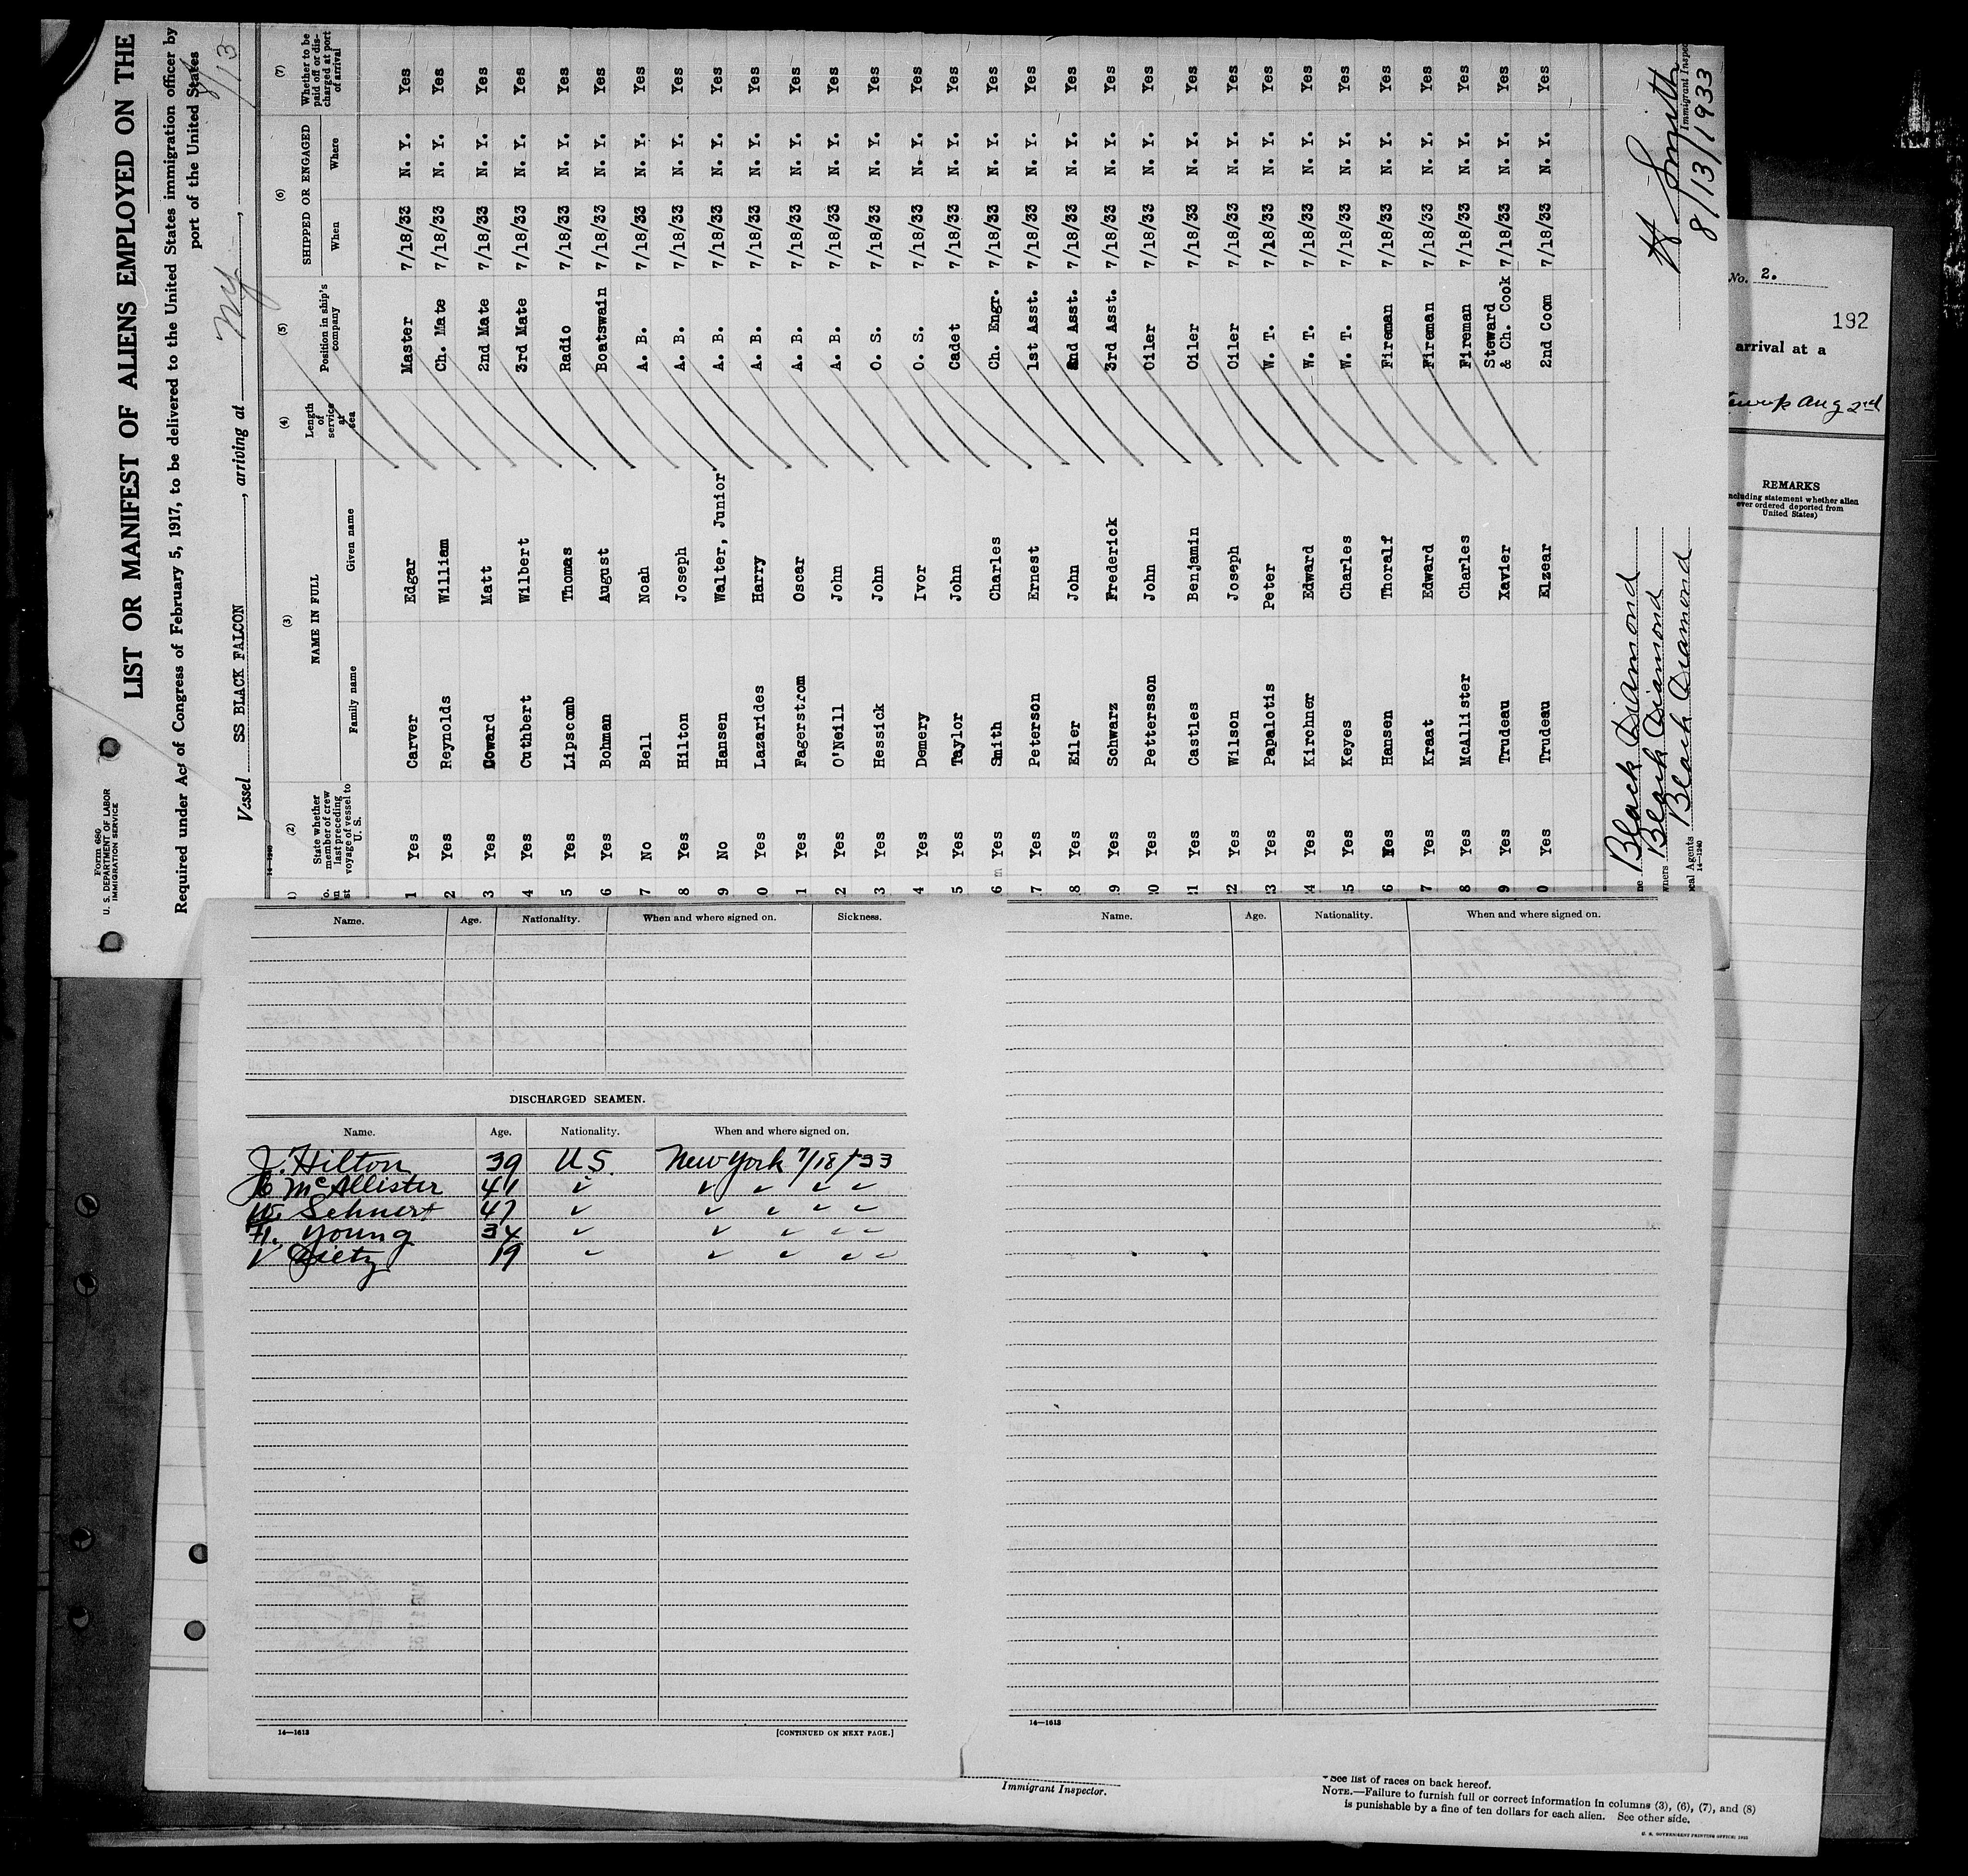 Form 680
U. S. DEPARTMENT OF LABOR
IMMIGRATION SERVICE
LIST OR MANIFEST OF ALIENS EMPLOYED ON THE
Required under Act of Congress of February 5, 1917, to be delivered to the United States immigration officer by
port of the United States
Vessel SS BLACK FALCON, arriving at NY, 8/13
14—1240
(2) (3) (4) (5) (6) (7)
State whether member of crew last preceding voyage of vessel to U. S.
NAME IN FULL
Family name Given name
Length of service at sea
Position in ship's company
SHIPPED OR ENGAGED
When Where
Whether to be paid off or discharged at port of arrival
1 Yes Carver Edgar Master 7/18/33 N. Y. Yes
2 Yes Reynolds William Ch. Mate 7/18/33 N. Y. Yes
3 Yes Coward Matt 2nd Mate 7/18/33 N. Y. Yes
4 Yes Cuthbert Wilbert 3rd Mate 7/18/33 N. Y. Yes
5 Yes Lipscomb Thomas Radio 7/18/33 N. Y. Yes
6 Yes Bohman August Boatswain 7/18/33 N. Y. Yes
7 No Bell Noah A. B. 7/18/33 N. Y. Yes
8 Yes Hilton Joseph A. B. 7/18/33 N. Y. Yes
9 No Hansen Walter, Junior A. B. 7/18/33 N. Y. Yes
0 Yes Lazarides Harry A. B. 7/18/33 N. Y. Yes
1 Yes Fagerstrom Oscar A. B. 7/18/33 N. Y. Yes
2 Yes O'Neill John A. B. 7/18/33 N. Y. Yes
3 Yes Hessick John O. S. 7/18/33 N. Y. Yes
4 Yes Demery Ivor O. S. 7/18/33 N. Y. Yes
5 Yes Taylor John Cadet 7/18/33 N. Y. Yes
6 Yes Smith Charles Ch. Engr. 7/18/33 N. Y. Yes
7 Yes Peterson Ernest 1st Asst. 7/18/33 N. Y. Yes
8 Yes Eiler John 2nd Asst. 7/18/33 N. Y. Yes
9 Yes Schwarz Frederick 3rd Asst. 7/18/33 N. Y. Yes
20 Yes Pettersson John Oiler 7/18/33 N. Y. Yes
21 Yes Castles Benjamin Oiler 7/18/33 N. Y. Yes
22 Yes Wilson Joseph Oiler 7/18/33 N. Y. Yes
23 Yes Papalotis Peter W. T. 7/18/33 N. Y. Yes
24 Yes Kirchner Edward W. T. 7/18/33 N. Y. Yes
5 Yes Keyes Charles W. T. 7/18/33 N. Y. Yes
6 Yes Hansen Thoralf Fireman 7/18/33 N. Y. Yes
7 Yes Kraat Edward Fireman 7/18/33 N. Y. Yes
8 Yes McAllister Charles Fireman 7/18/33 N. Y. Yes
9 Yes Trudeau Xavier Steward & Ch. Cook 7/18/33 N. Y. Yes
0 Yes Trudeau Elzear 2nd Coom 7/18/33 N. Y. Yes
Black Diamond
wners Black Diamond
ocal Agents Black Diamond
14—1240
H Smith
Immigrant Inspec
8/13/1933
No. 2.
192
arrival at a
Aug 2nd
REMARKS
ncluding statement whether alien
ever ordered deported from
United States)
Name. Age. Nationality. When and where signed on. Sickness.
DISCHARGED SEAMEN.
Name. Age. Nationality. When and where signed on.
J. Hilton 39 U S. New York 7/18/33
C McAllister 41 ✓ ✓ ✓ ✓ ✓
W. Schnert 47 ✓ ✓ ✓ ✓ ✓
H. Young 34 ✓ ✓ ✓ ✓ ✓
V Dietz 19 ✓ ✓ ✓ ✓ ✓
14—1613 [CONTINUED ON NEXT PAGE.]
Name. Age. Nationality. When and where signed on.
14—1613
Immigrant Inspector.
* See list of races on back hereof.
NOTE.—Failure to furnish full or correct information in columns (3), (6), (7), and (8)
is punishable by a fine of ten dollars for each alien. See other side.
U. S. GOVERNMENT PRINTING OFFICE: